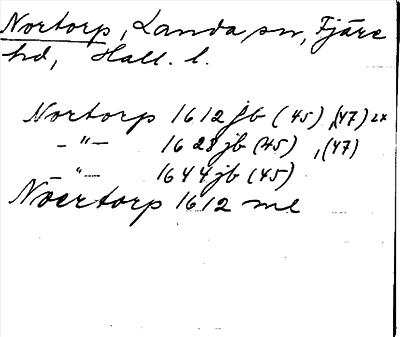 Nortorp, Landa sn, Fjäre
hd, Hall. l.
Nortorp 1612 jb (45), (47) 2x
-"- 1628 jb (45), (47)
-"- 1644 jb (45)
Nöertorp 1612 ml